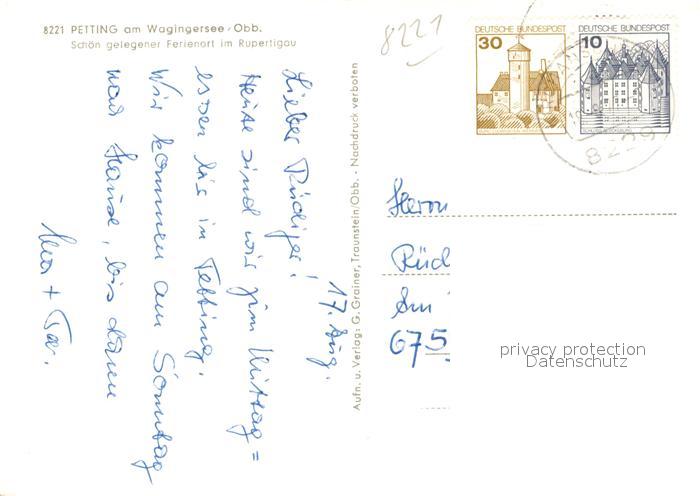 8221 PETTING am Wagingersee-Obb.
Schön gelegener Ferienort im Rupertigau
8221
DEUTSCHE BUNDESPOST
30
DEUTSCHE BUNDESPOST
10
8229
17. Aug.
Lieber Rüdiger!
Heute sind wir zum Mittag=
essen hier in Petting.
Wir kommen am Sonntag
nach Hause, bis dann
+
Aufn. u. Verlag: G. Grainer, Traunstein/Obb. - Nachdruck verboten
Herrn
Rüd
Am
675
privacy protection
Datenschutz